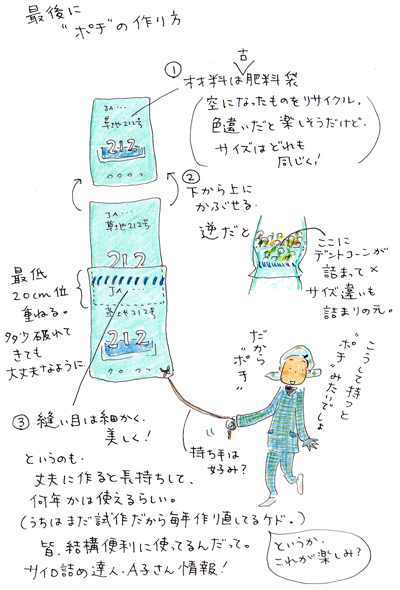 最後に
"ポチ"の作り方
① 材料は古肥料袋
(空になったものをリサイクル。
色違いだと楽しそうだけど、
サイズはどれも
同じく!)
JA・・・
草地212号
212
② 下から上に
かぶせる。
逆だと
ここに
デントコーンが
詰まって×
サイズ違いも
詰まりの元。
JA・・・
草地212号
212
最低
20cm位
重ねる。
多少破れて
きても
大丈夫なように
JA・・・
草地212号
212
だから
"ポチ"
こうして持つと
"ポチ"みたいでしょ
③ 縫い目は細かく、
美しく!
持ち手は
好み?
というのも、
丈夫に作ると長持ちして、
何年かは使えるらしい。
(うちはまだ試作だから毎年作り直してるケド。)
皆、結構便利に使ってるんだって。
サイロ詰め達人・A子さん情報!
というか、
これが楽しみ?